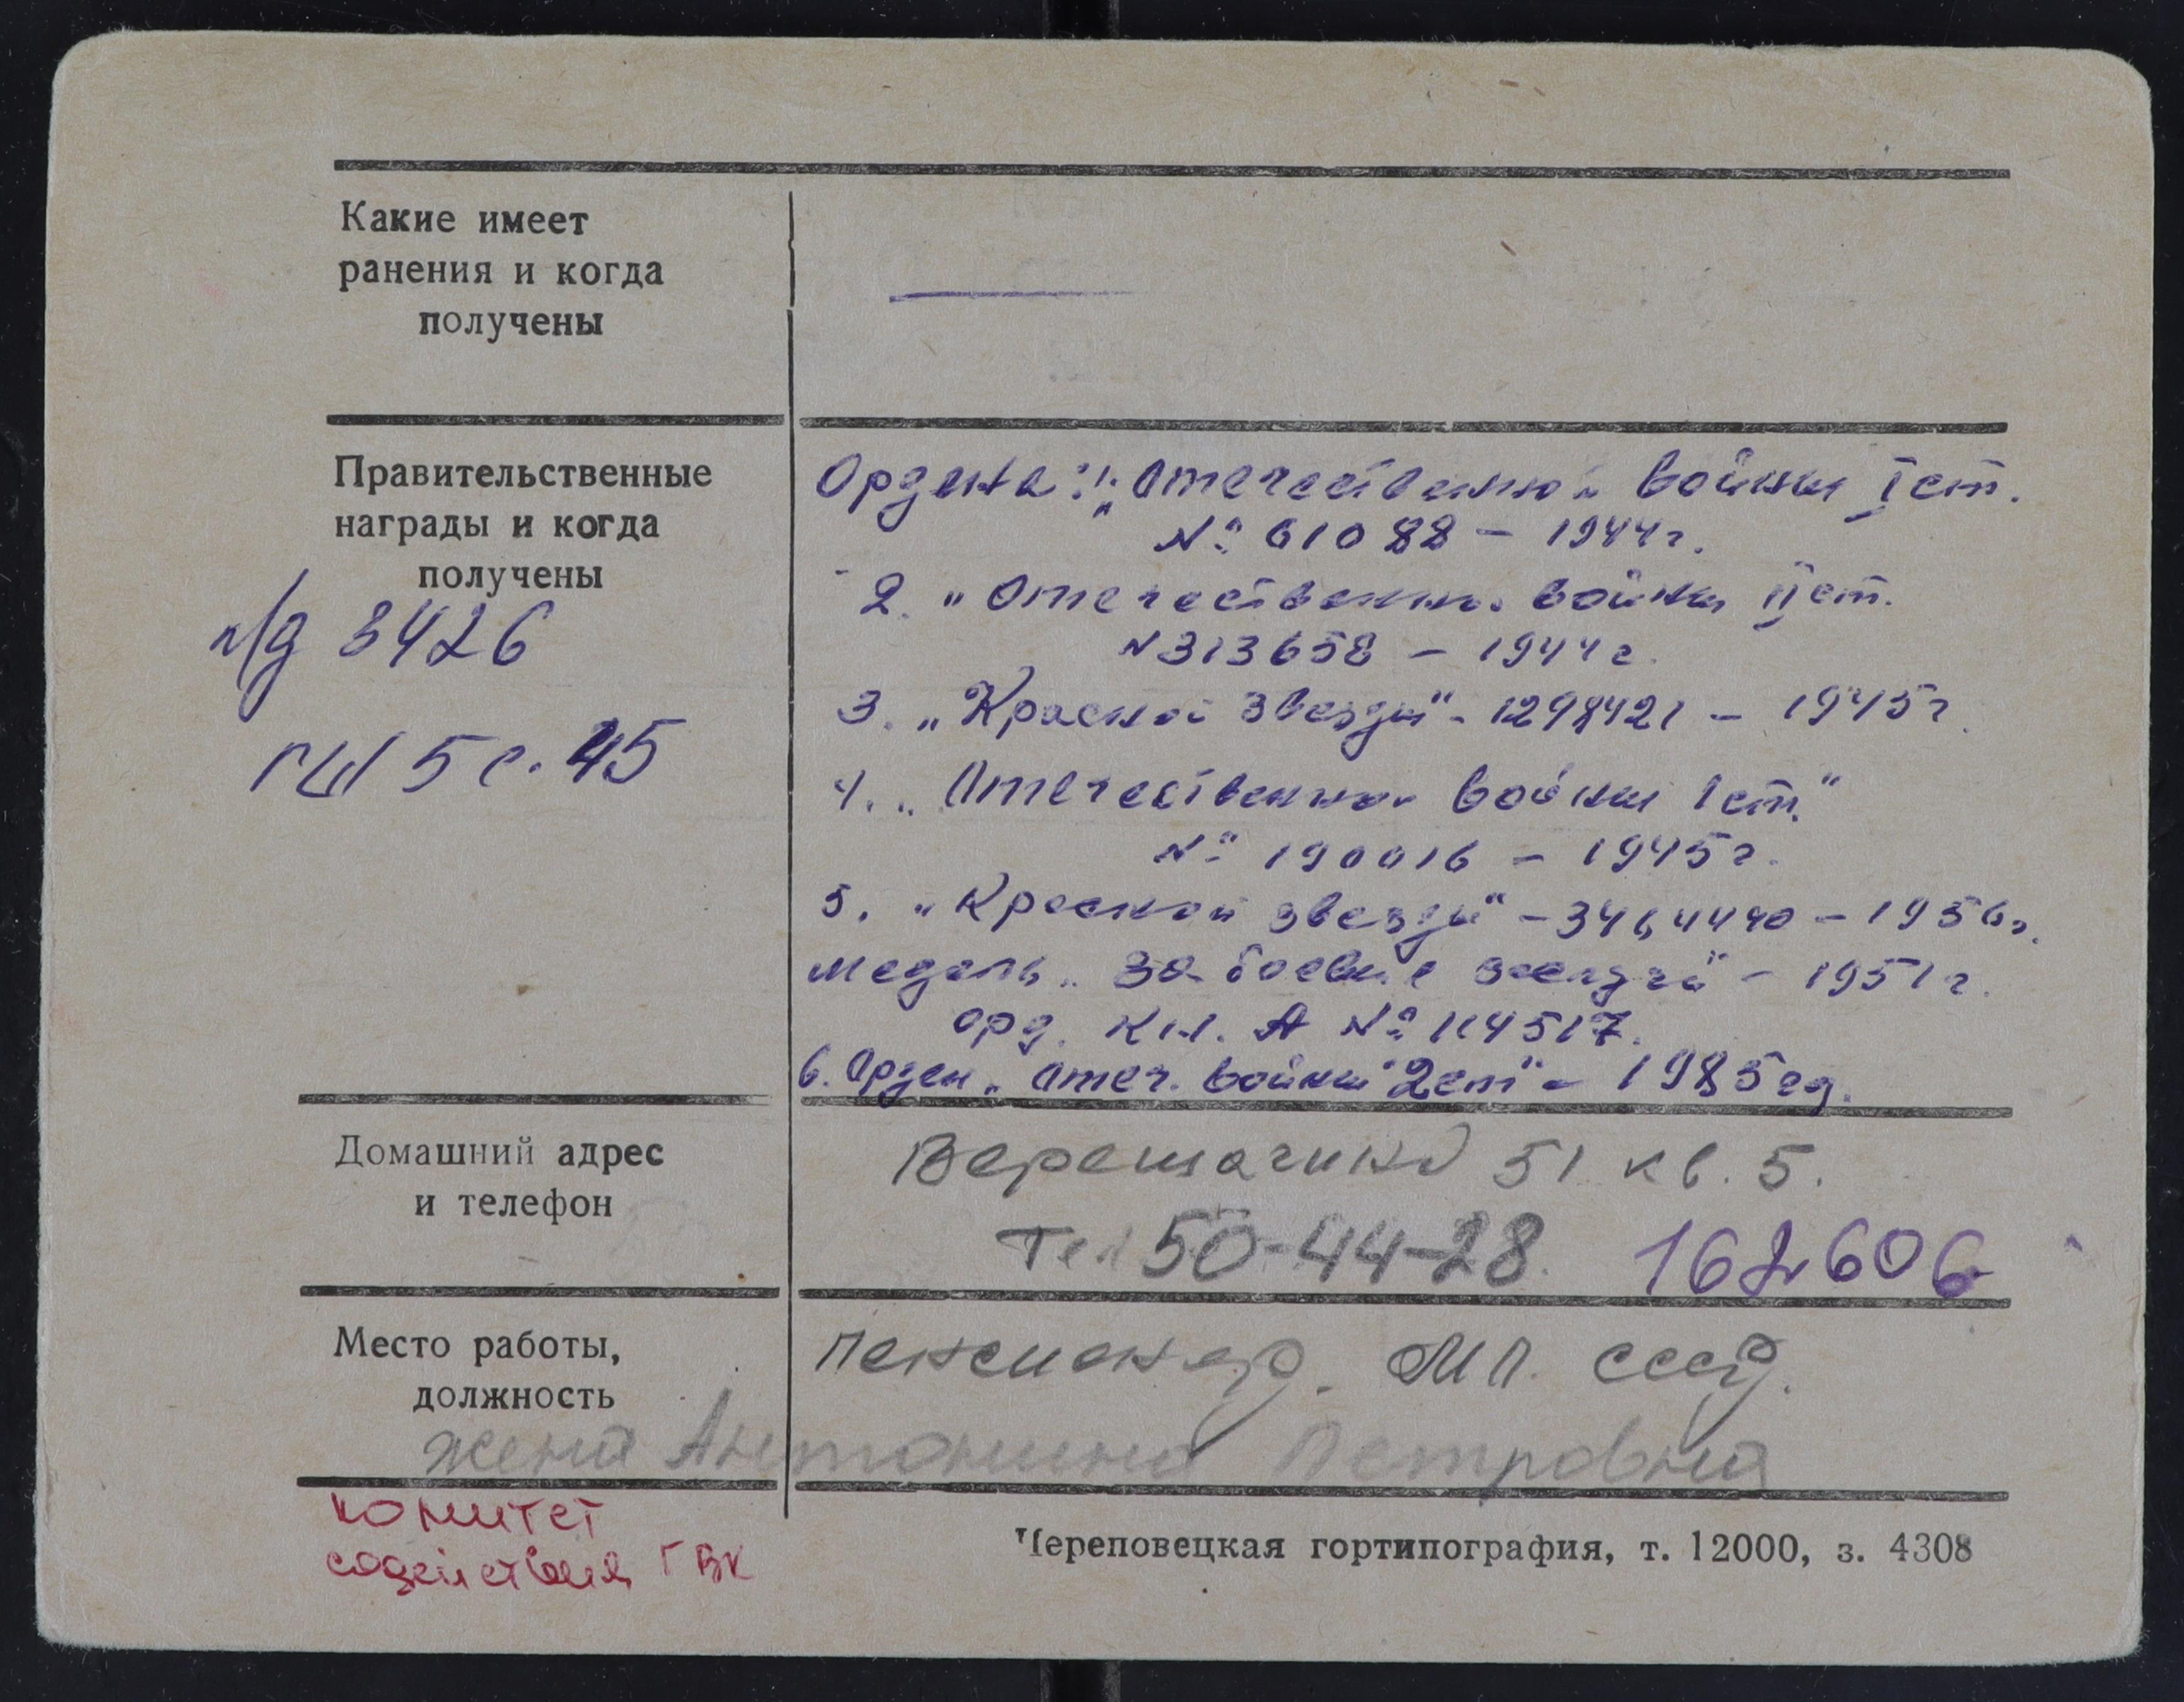 Какие имеет
ранения и когда
получены
—
Правительственные
награды и когда
получены
л/д 3426
ГШ 5 с. 45
Ордена: 1. „Отечественной войны I ст.
№ 61088 – 1944 г.
2. „Отечественной войны II ст.
N 313658 – 1944 г.
3. „Красной звезды" - 1298421 – 1945 г.
4. „Отечественной войны I ст."
№ 190016 – 1945 г.
5. „Красной звезды" – – 1956 г.
медаль „За боевые заслуги" – 1951 г.
орд. кн. А № 114517.
6. Орден „Отеч. войны 2 ст" – 1985 год.
Домашний адрес
и телефон
Верещагина 51 кв. 5.
Тел 50-44-28. 162606
Место работы,
должность
пенсионер. СССР.
жена Антонина Петровна
комитет
содействия ГВК
Череповецкая гортипография, т. 12000, з. 4308